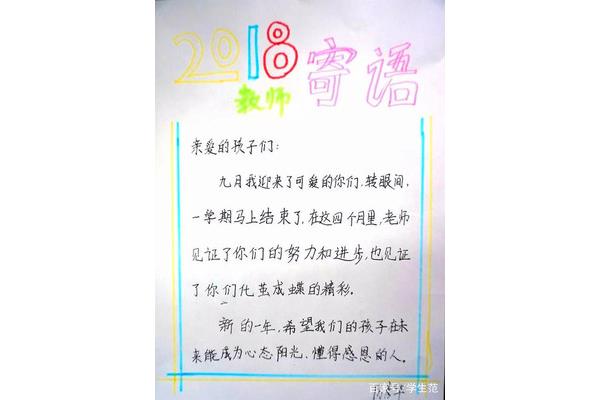 2018
教师
寄语
亲爱的孩子们:
九月我迎来了可爱的你们,转眼间,
一学期马上结束了,在这四个月里,老师
见证了你们的努力和进步,也见证
了你们化茧成蝶的精彩。
新的一年,希望我们的孩子在未
来能成为心态阳光、懂得感恩的人。
百家号/学生范